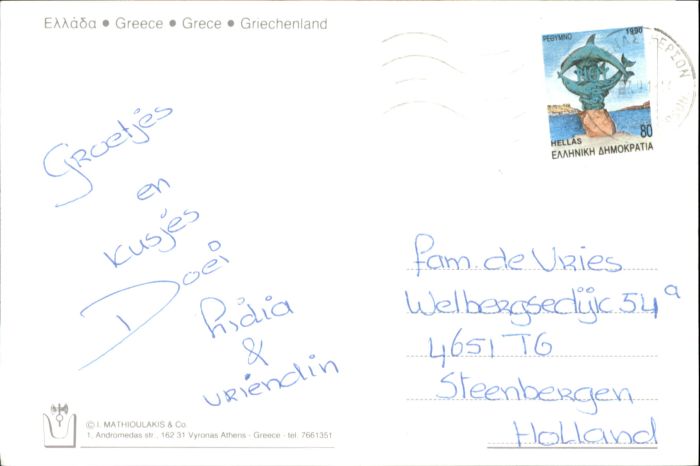 Ελλάδα • Greece • Grece • Griechenland
ΡΕΘΥΜΝΟ 1990
HELLAS 80
ΕΛΛΗΝΙΚΗ ΔΗΜΟΚΡΑΤΙΑ
Groetjes
en
kusjes
Doei
Lidia
&
vriendin
fam. de Vries
Welbergsedijk 54a
4651 TG
Steenbergen
Holland
© I. MATHIOULAKIS & Co
1, Andromedas str., 162 31 Vyronas Athens - Greece - tel. 7661351